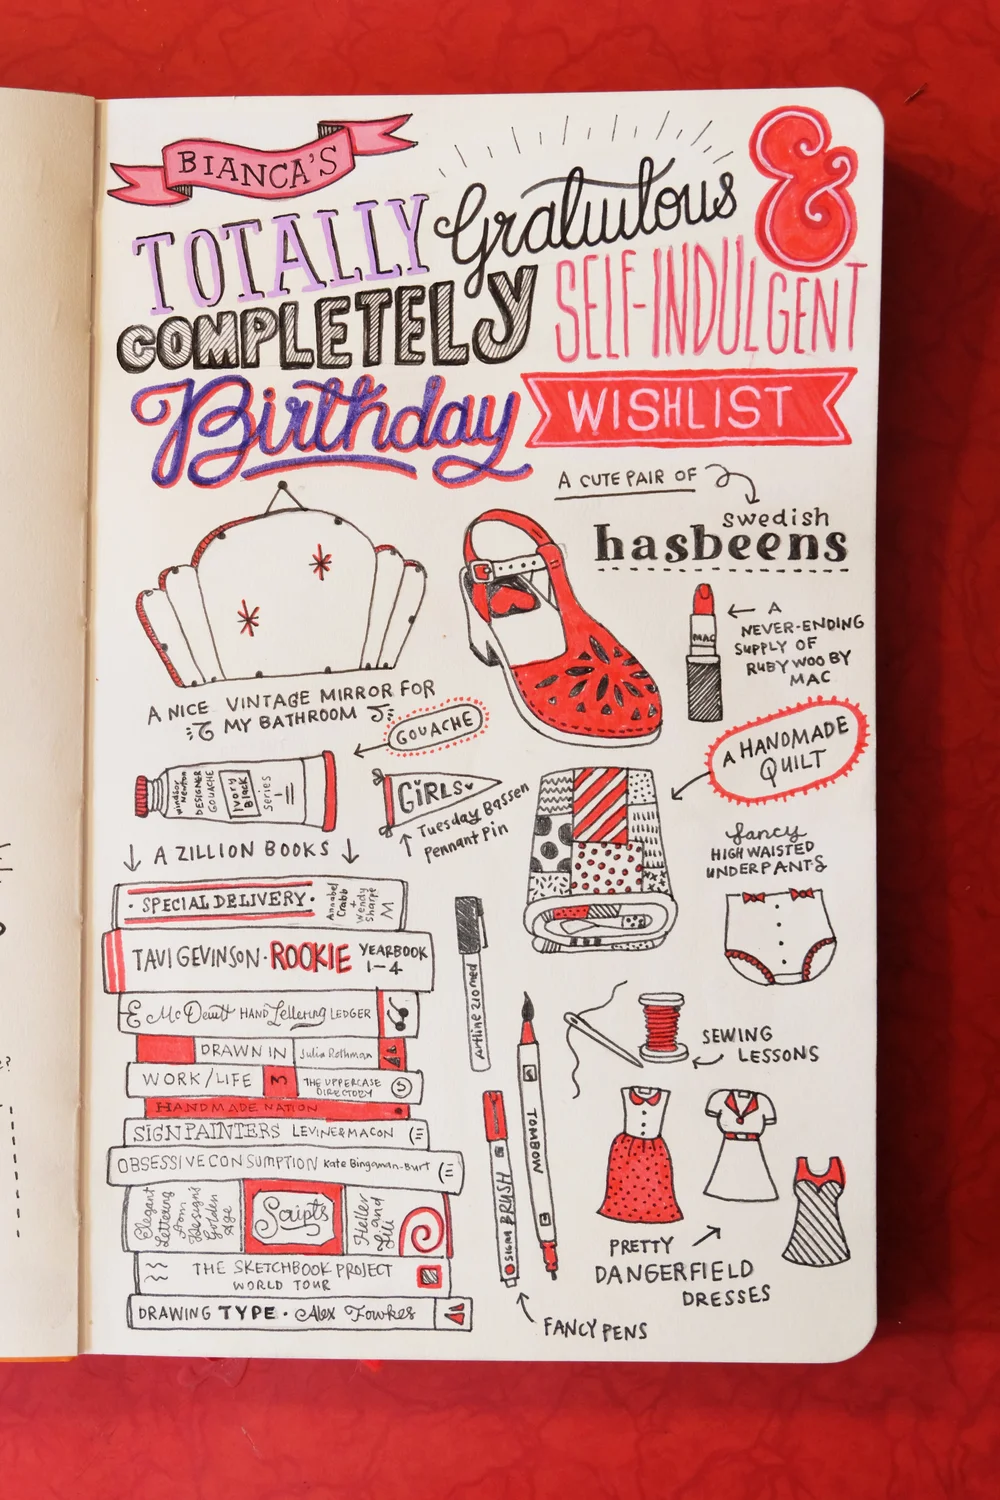 BIANCA'S
TOTALLY Gratuitous &
COMPLETELY SELF-INDULGENT
Birthday WISHLIST
A CUTE PAIR OF
swedish
hasbeens
A NICE VINTAGE MIRROR FOR
MY BATHROOM
MAC
A
NEVER-ENDING
SUPPLY OF
RUBY WOO BY
MAC
GOUACHE
Windsor
Newton
DESIGNER
GOUACHE
Ivory
Black
series
GIRLS
Tuesday Bassen
Pennant Pin
A HANDMADE
QUILT
A ZILLION BOOKS
fancy
HIGH WAISTED
UNDERPANTS
· SPECIAL DELIVERY ·
Annabel
Crabb
+
Wendy
Sharpe
M
TAVI GEVINSON · ROOKIE YEARBOOK
1-4
McDevitt HAND Lettering LEDGER
DRAWN IN Julia Rothman
WORK/LIFE 3 THE UPPERCASE
DIRECTORY
HANDMADE NATION
SIGN PAINTERS LEVINE & MACON
OBSESSIVE CONSUMPTION Kate Bingaman-Burt
Elegant
Lettering
from
Designs
Golden
Age
Scripts
Heller
and
Ili
THE SKETCHBOOK PROJECT
WORLD TOUR
DRAWING TYPE · Alex Fowkes
Artline 210 med
TOMBOW
SIGMA BRUSH
FANCY PENS
SEWING
LESSONS
PRETTY
DANGERFIELD
DRESSES